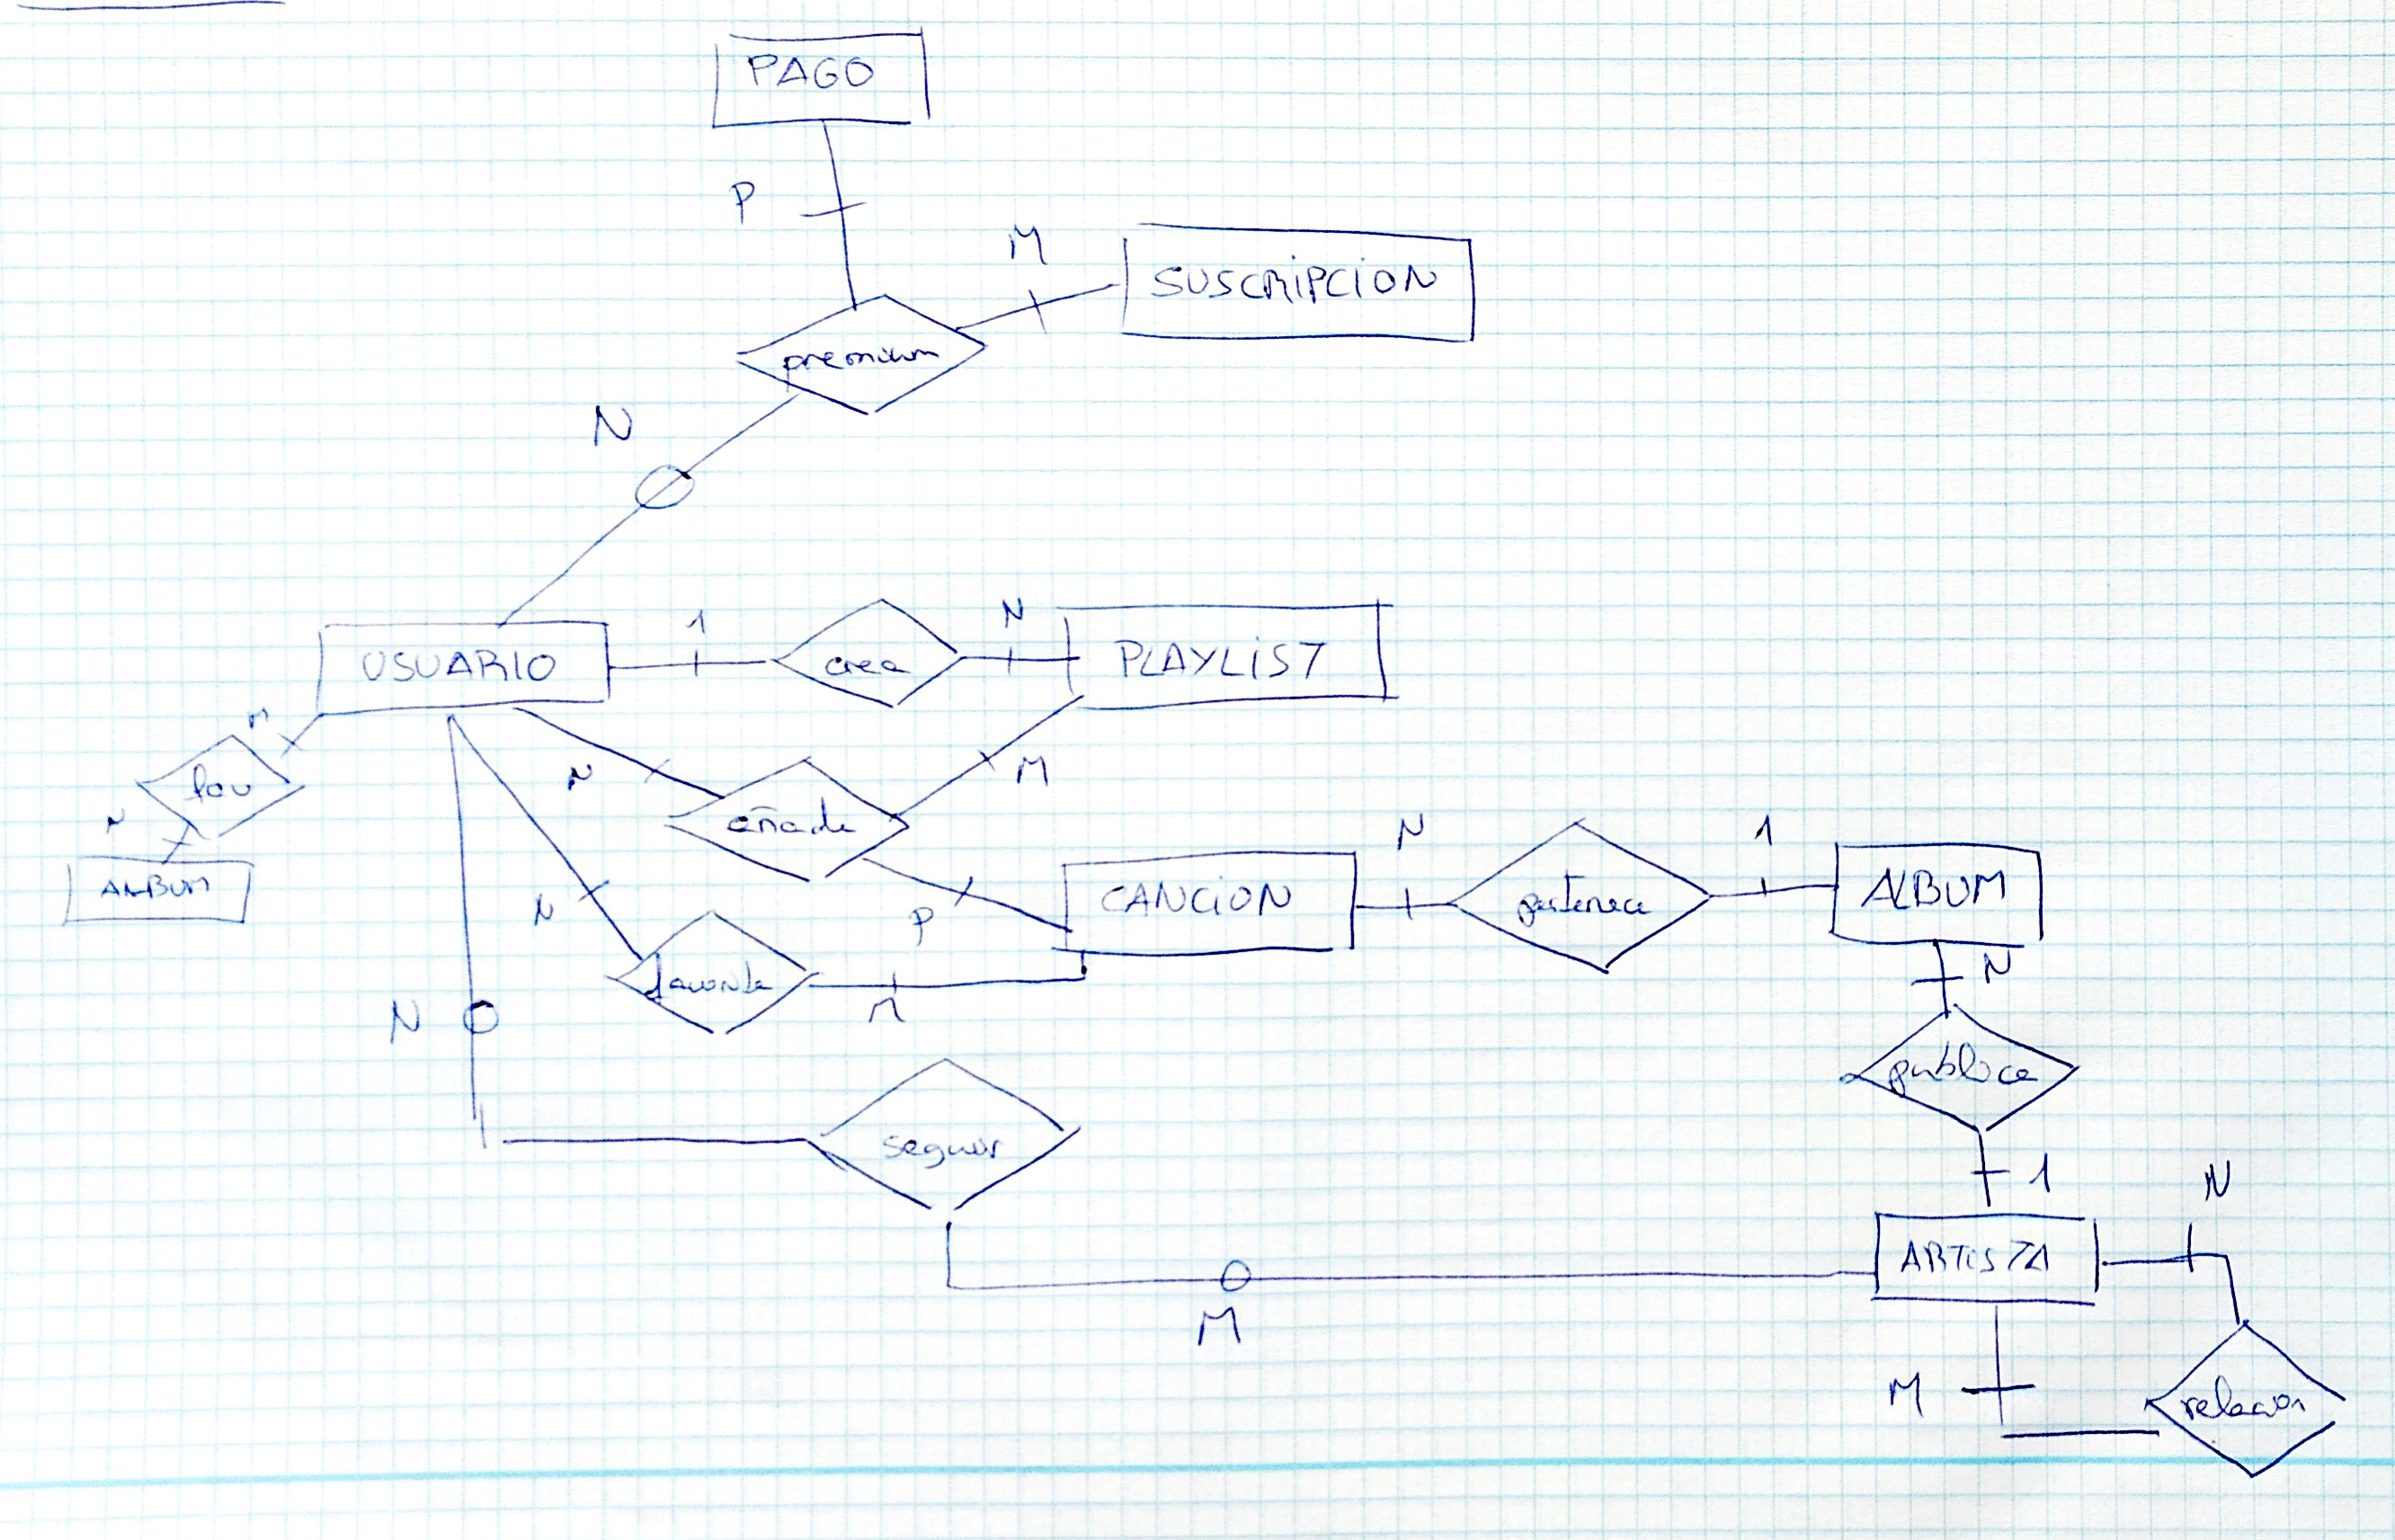 PAGO
P
M
SUSCRIPCION
premium
N
1
N
USUARIO
crea
PLAYLIST
M
fav
N
M
N
añade
ALBUM
N
P
CANCION
N
pertenece
1
ALBUM
favorita
M
N
N
publica
seguir
1
N
ARTISTA
M
M
relacion